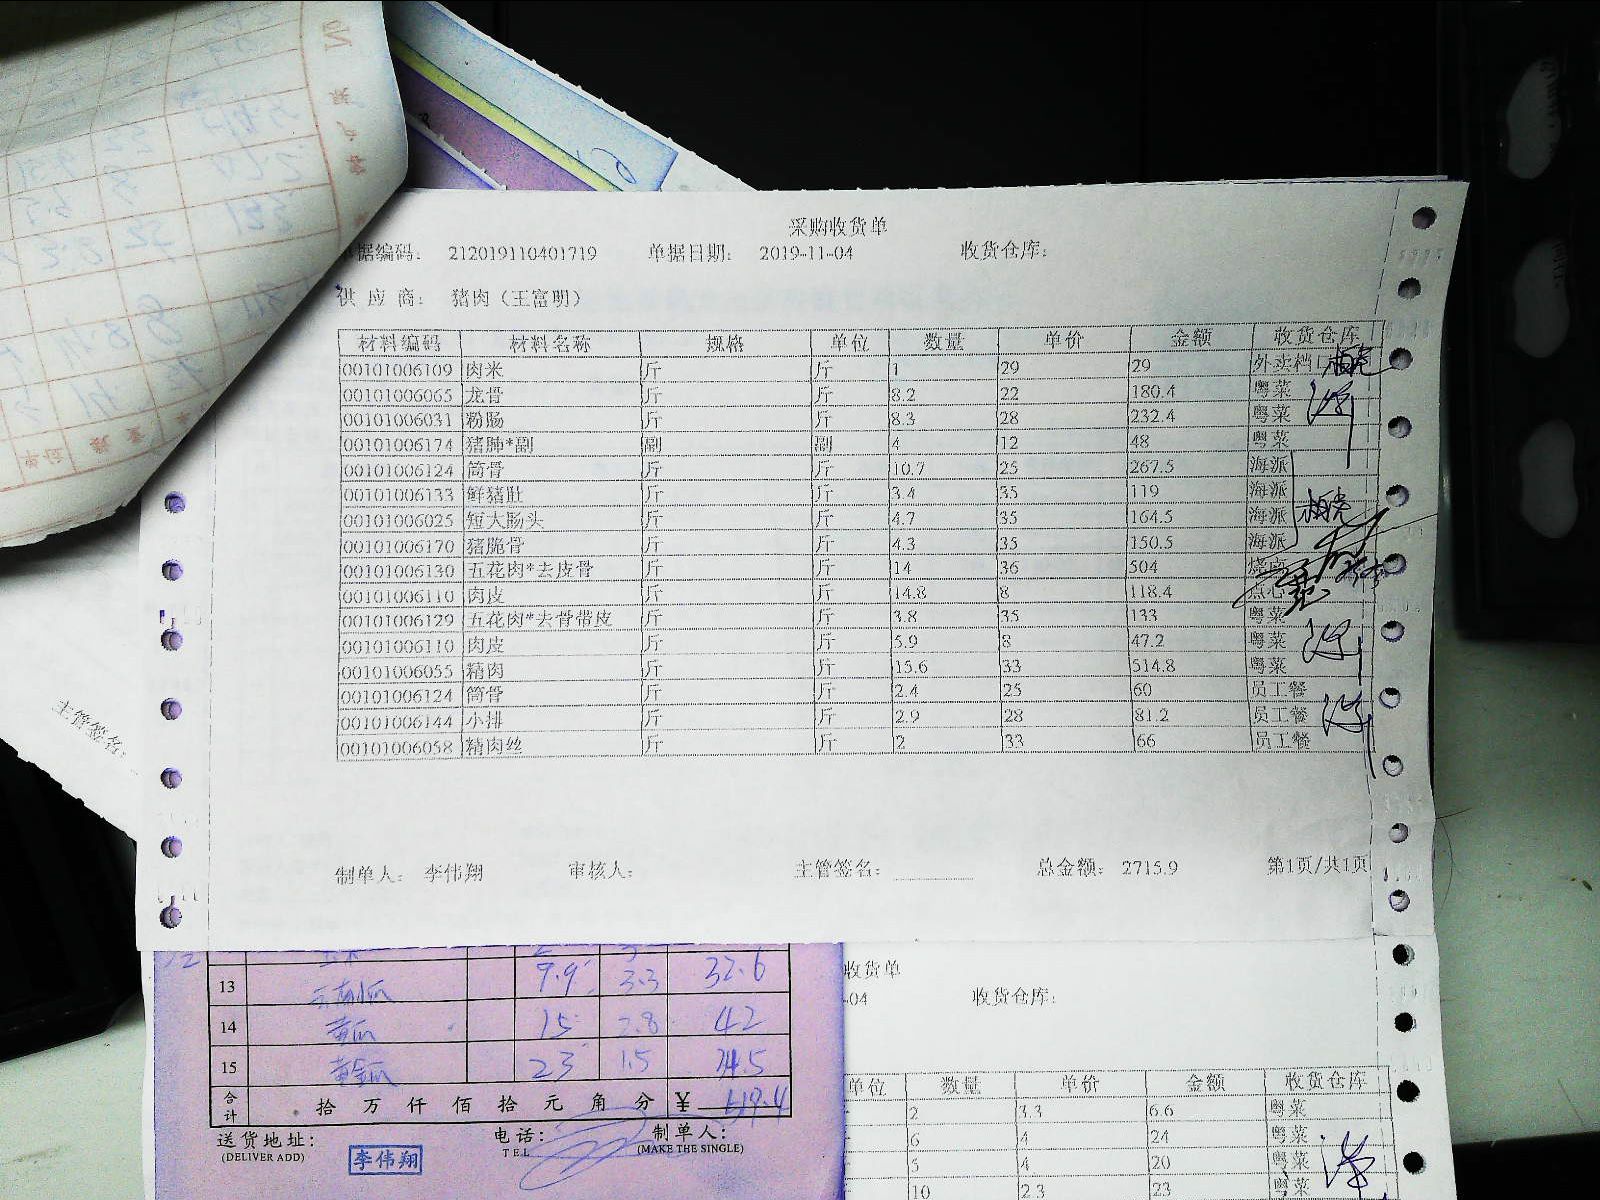 采购收货单
据编码： 212019110401719 单据日期： 2019-11-04 收货仓库：
供 应 商： 猪肉（王富明）
材料编码 材料名称 规格 单位 数量 单价 金额 收货仓库
00101006109 肉米 斤 斤 1 29 29 外卖档口
00101006065 龙骨 斤 斤 8.2 22 180.4 粤菜
00101006031 粉肠 斤 斤 8.3 28 232.4 粤菜
00101006174 猪肺*副 副 副 4 12 48 粤菜
00101006124 筒骨 斤 斤 10.7 25 267.5 海派
00101006133 鲜猪肚 斤 斤 3.4 35 119 海派
00101006025 短大肠头 斤 斤 4.7 35 164.5 海派
00101006170 猪脆骨 斤 斤 4.3 35 150.5 海派
00101006130 五花肉*去皮骨 斤 斤 14 36 504
00101006110 肉皮 斤 斤 14.8 8 118.4 点心
00101006129 五花肉*去骨带皮 斤 斤 3.8 35 133 粤菜
00101006110 肉皮 斤 斤 5.9 8 47.2 粤菜
00101006055 精肉 斤 斤 15.6 33 514.8 粤菜
00101006124 筒骨 斤 斤 2.4 25 60 员工餐
00101006144 小排 斤 斤 2.9 28 81.2 员工餐
00101006058 精肉丝 斤 斤 2 33 66 员工餐
制单人： 李伟翔 审核人： 主管签名： 总金额： 2715.9 第1页/共1页
主管签名：
13 9.9 3.3 32.6
14 黄瓜 15 2.8 42
15 黄金瓜 23 1.5 34.5
合计 拾 万 仟 佰 拾 元 角 分 ¥
送货地址： 电话： 制单人：
(DELIVER ADD) TEL (MAKE THE SINGLE)
李伟翔
收货单
-04 收货仓库：
单位 数量 单价 金额 收货仓库
2 3.3 6.6 粤菜
6 4 24 粤菜
5 4 20 粤菜
10 2.3 23 粤菜